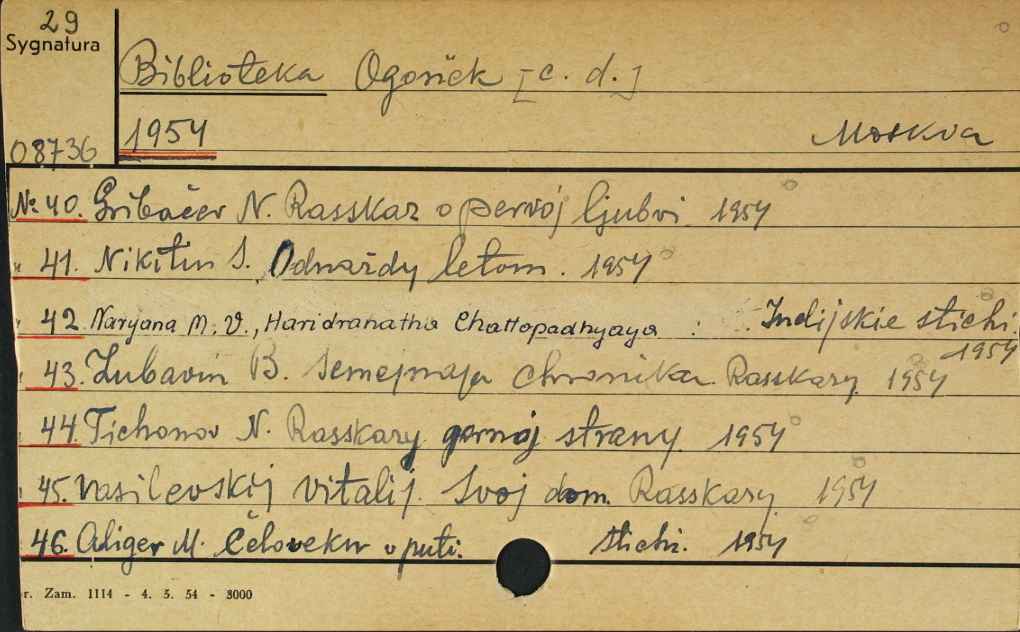 29
Sygnatura
Biblioteka Ogonëk [c. d.]
1954 Moskva
08736
№ 40. Gribačev N. Rasskaz o pervoj ljubvi. 1954
" 41. Nikitin S. Odnaždy letom. 1954
" 42. Naryana M. V., Haridranatha Chattopadhyaya : Indijskie stichi.
1954
" 43. Zubavin B. Semejnaja chronika. Rasskazy. 1954
" 44. Tichonov N. Rasskazy gornoj strany. 1954
" 45. Vasilevskij Vitalij. Svoj dom. Rasskazy 1954
46. Aliger M. Čeloveku v puti. Stichi. 1954
r. Zam. 1114 - 4. 5. 54 - 3000